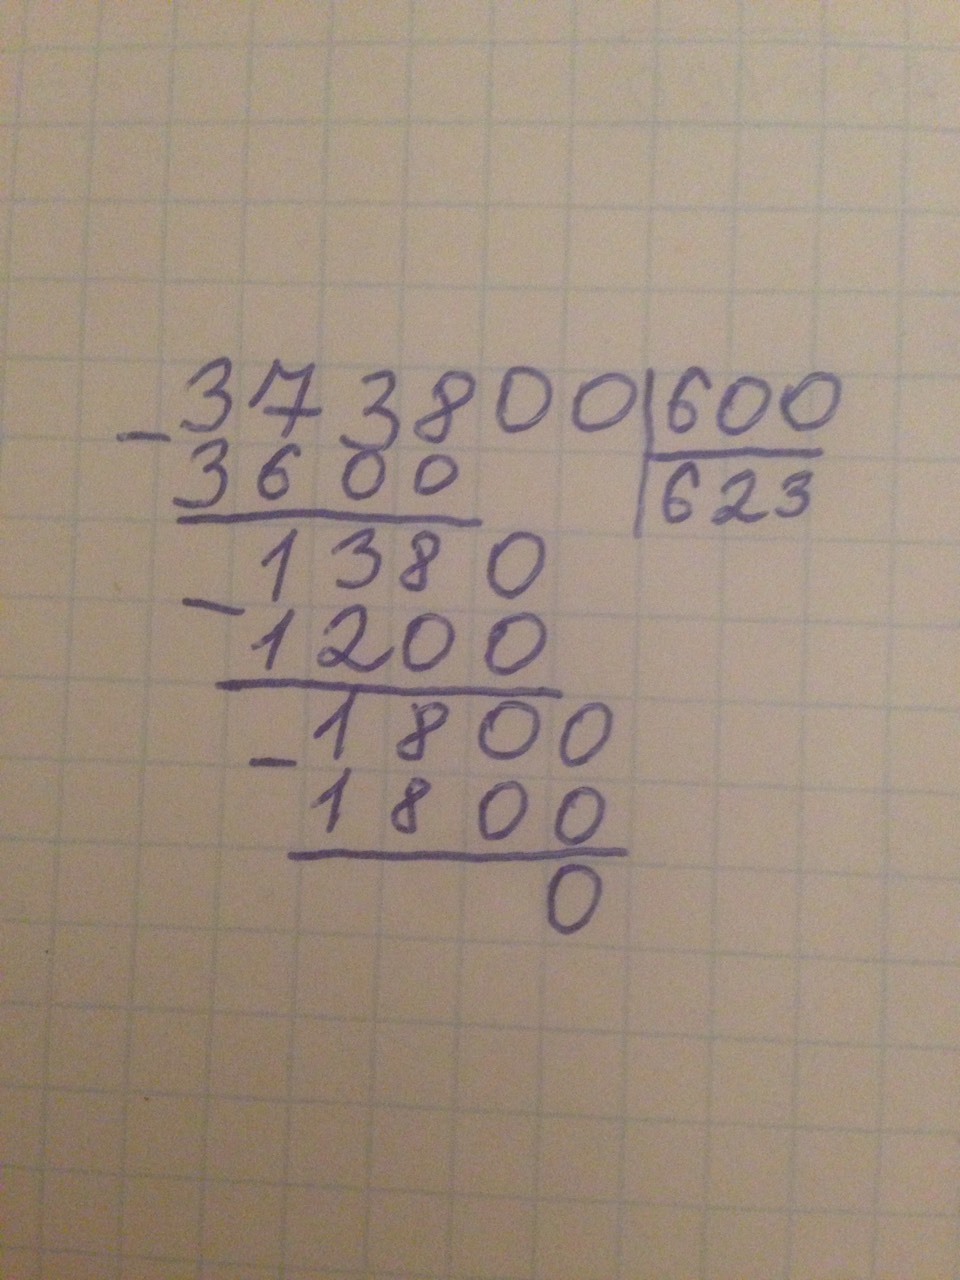 373800|600
-3600 623
1380
-1200
-1800
1800
0